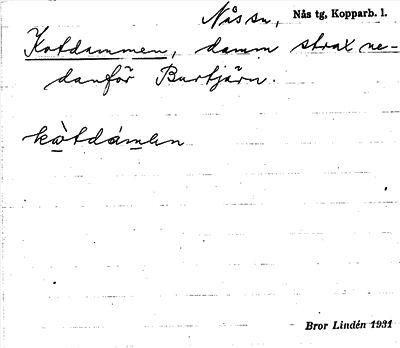 Nås sn, Nås tg, Kopparb. l.
Kotdammen, damm strax ne-
danför Burtjärn.
kòtdámen
Bror Lindén 1931